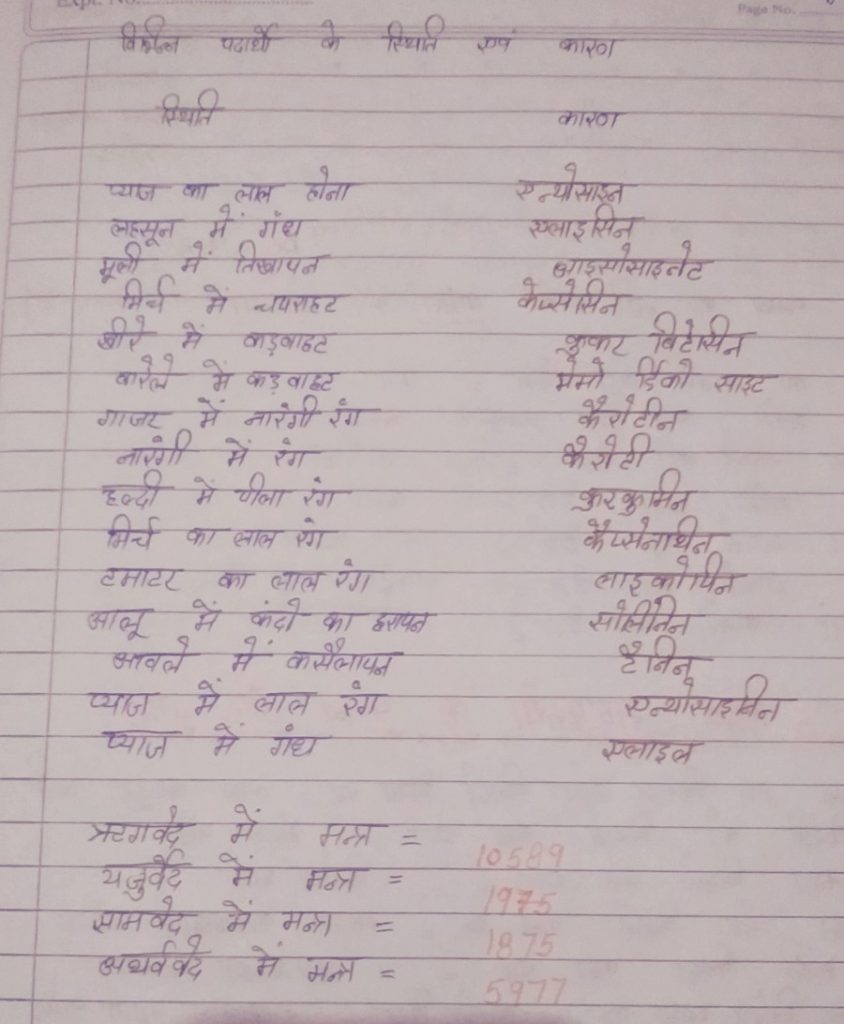 Expt. No.
Page No.
विभिन्न पदार्थो के स्थिति एवं कारण
स्थिति कारण
प्याज का लाल होना एन्थोसाइन
लहसून में गंध एलाइसिन
मूली में तिखापन आइसोसाइनेट
मिर्च में चपराहट केप्सेसिन
खीरे में कड़वाहट कुकर बिटेसिन
करेले में कड़वाहट मेमो र्डिको साइट
गाजर में नारंगी रंग कैरोटीन
नारंगी में रंग कैरोटी
हल्दी में पीला रंग कुरकुमिन
मिर्च का लाल रंग कैप्सेनाथीन
टमाटर का लाल रंग लाइकोपिन
आलू में कंदो का हरापन सोलेनिन
आवले में कसैलापन टैनिन
प्याज में लाल रंग एन्थोसाइनिन
प्याज में गंध एलाइल
ऋगवेद में मन्त्र = 10589
यजुर्वेद में मन्त्र = 1975
सामवेद में मन्त्र = 1875
अथर्ववेद में मन्त्र = 5977